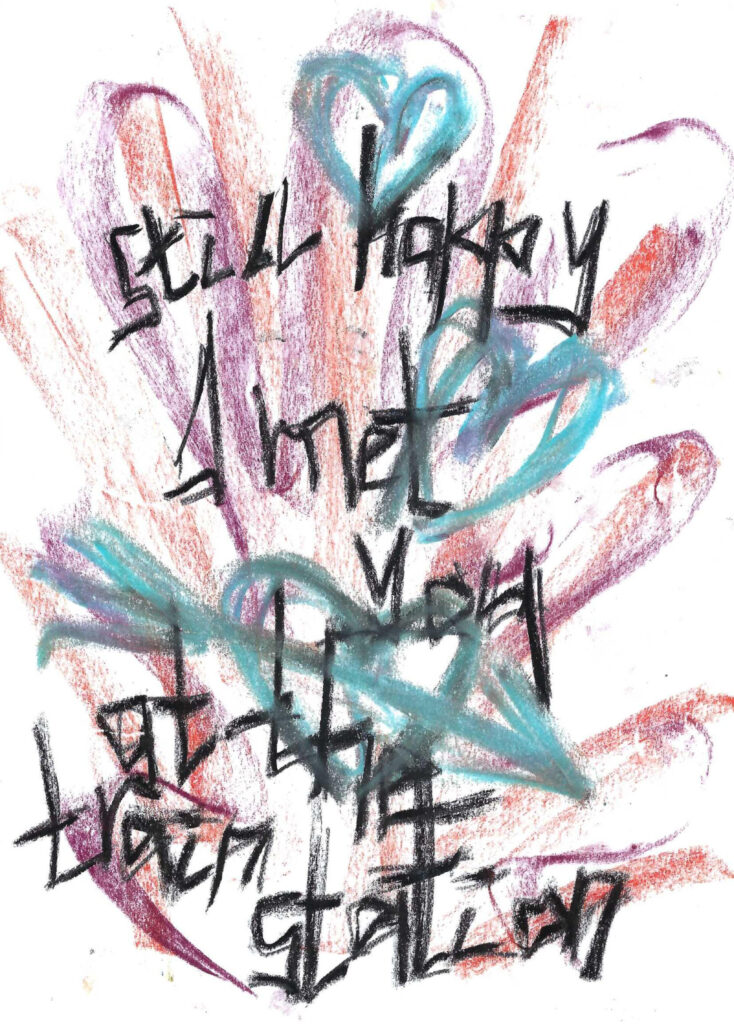 still happy
I met
you
at the
train
station